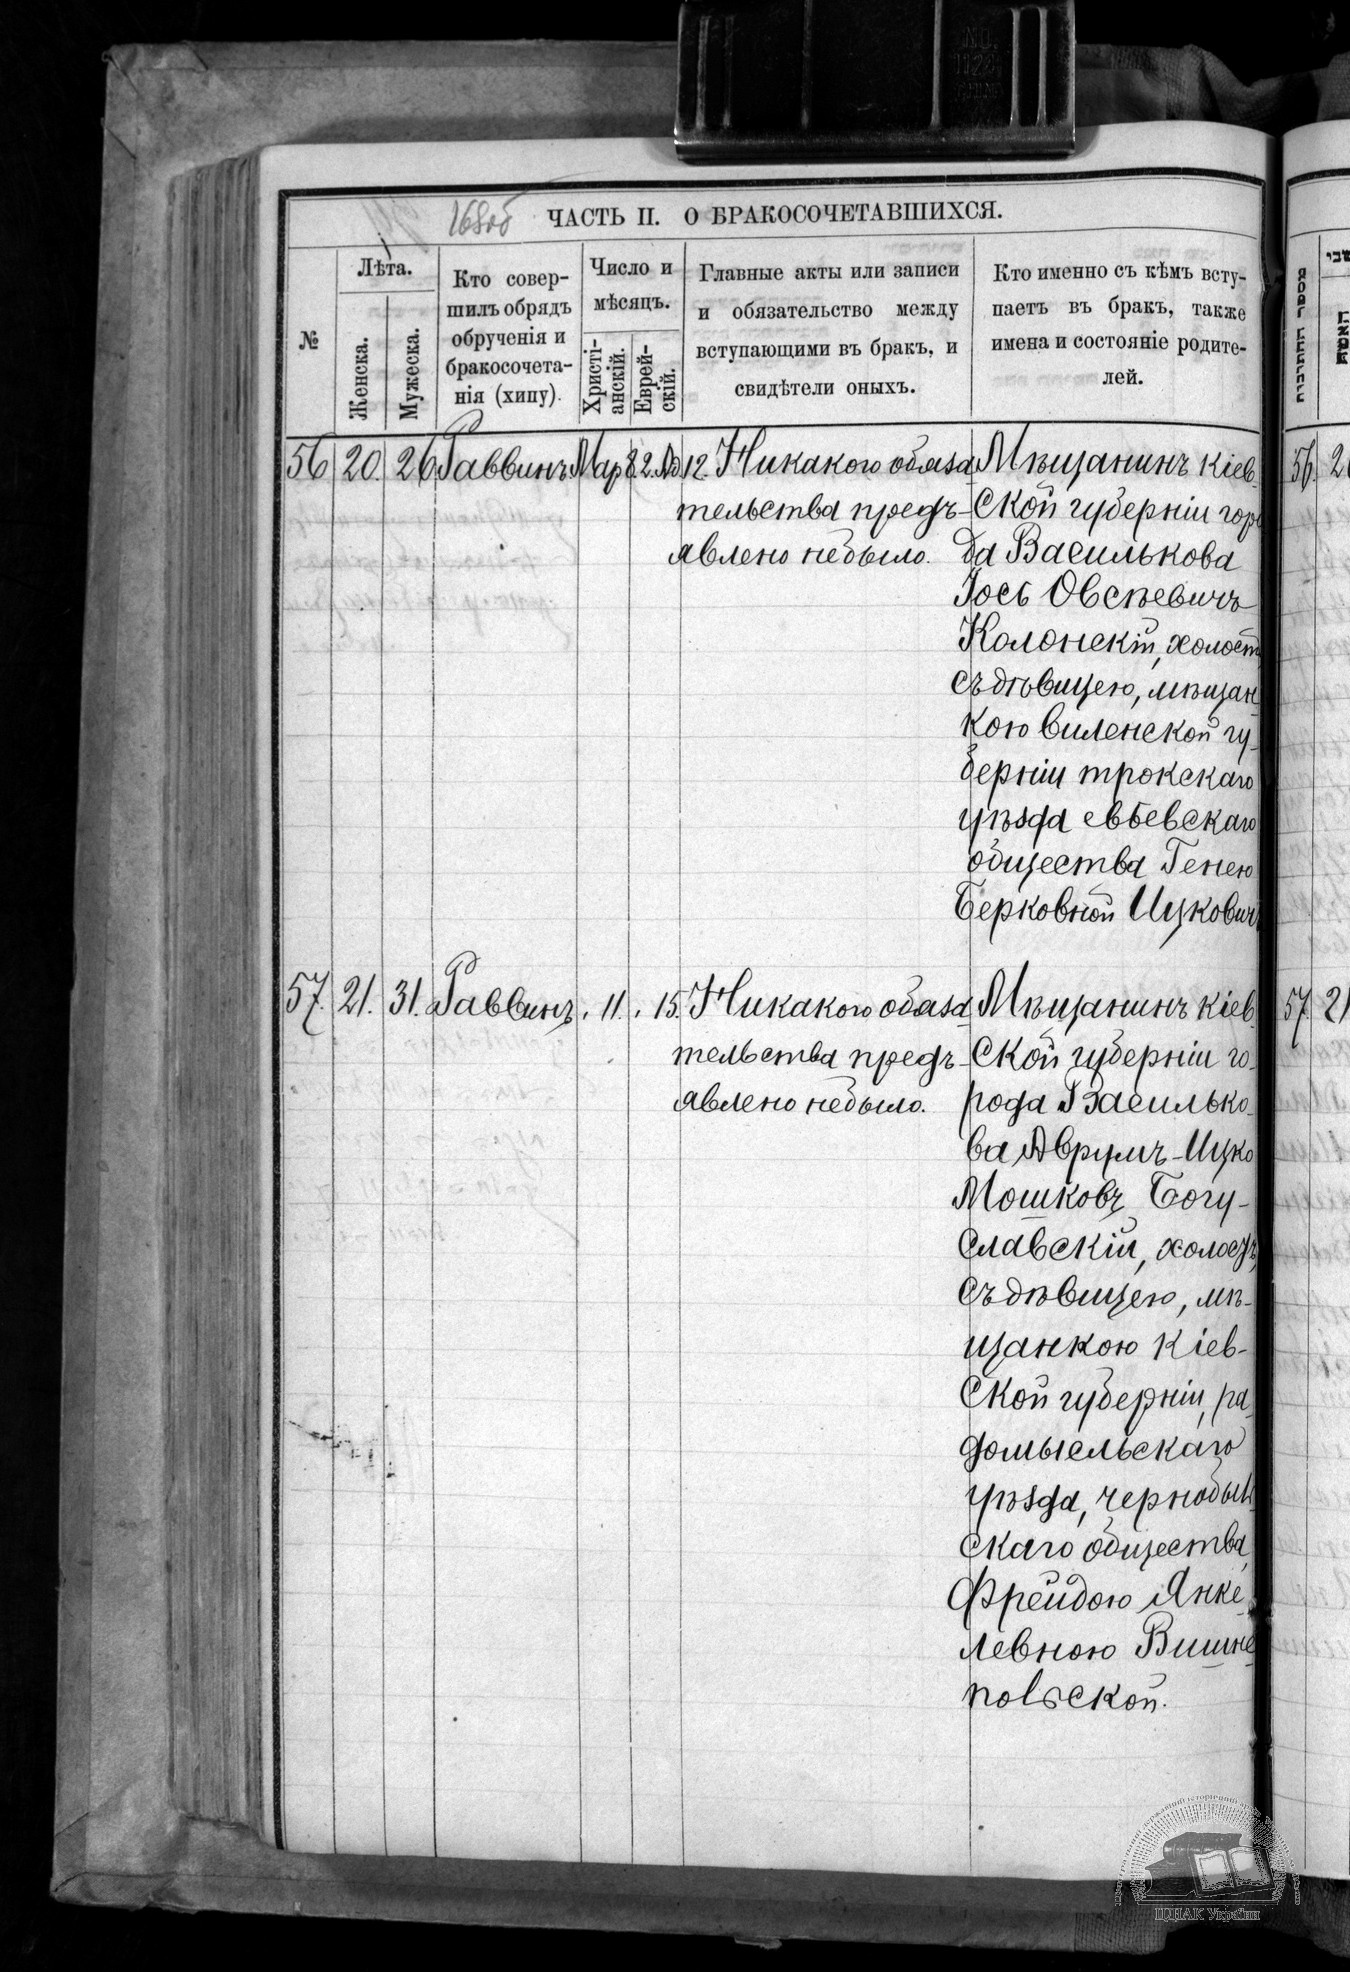 168об
ЧАСТЬ II. О БРАКОСОЧЕТАВШИХСЯ.
№
Лѣта.
Женска.
Мужеска.
Кто совер-
шилъ обрядъ
обрученія и
бракосочета-
нія (хипу).
Число и
мѣсяцъ.
Христі-
анскій.
Еврей-
скій.
Главные акты или записи
и обязательство между
вступающими въ бракъ, и
свидѣтели оныхъ.
Кто именно съ кѣмъ всту-
паетъ въ бракъ, также
имена и состояніе родите-
лей.
56 20. 26 Раввинъ. Мар 8. 12. Никакого обяза
тельства предъ-
явлено небыло.
Мѣщанинъ кіев-
ской губерніи горо
да Василькова
Іось Овсѣевичъ
Колонскій, холостъ
съ дѣвицею, мѣщан-
кою виленской гу-
берніи трокскаго
уѣзда евьевскаго
общества Генею
Берковной Ицкович
57. 21. 31. Раввинъ. " 11. " 15. Никакого обяза
тельства предъ-
явлено небыло.
Мѣщанинъ кіев-
ской губерніи го-
рода Василько-
ва Аврумъ-Ицко
Мошковъ Богу-
славскій, холостъ,
съ дѣвицею, мѣ-
щанкою кіев-
ской губерніи, ра-
домысльскаго
уѣзда, чернобыль-
скаго общества,
Фрейдою Янке-
левною Вишне-
польской.
מספר החתונות
56. 2
57. 21
ЦДІАК України